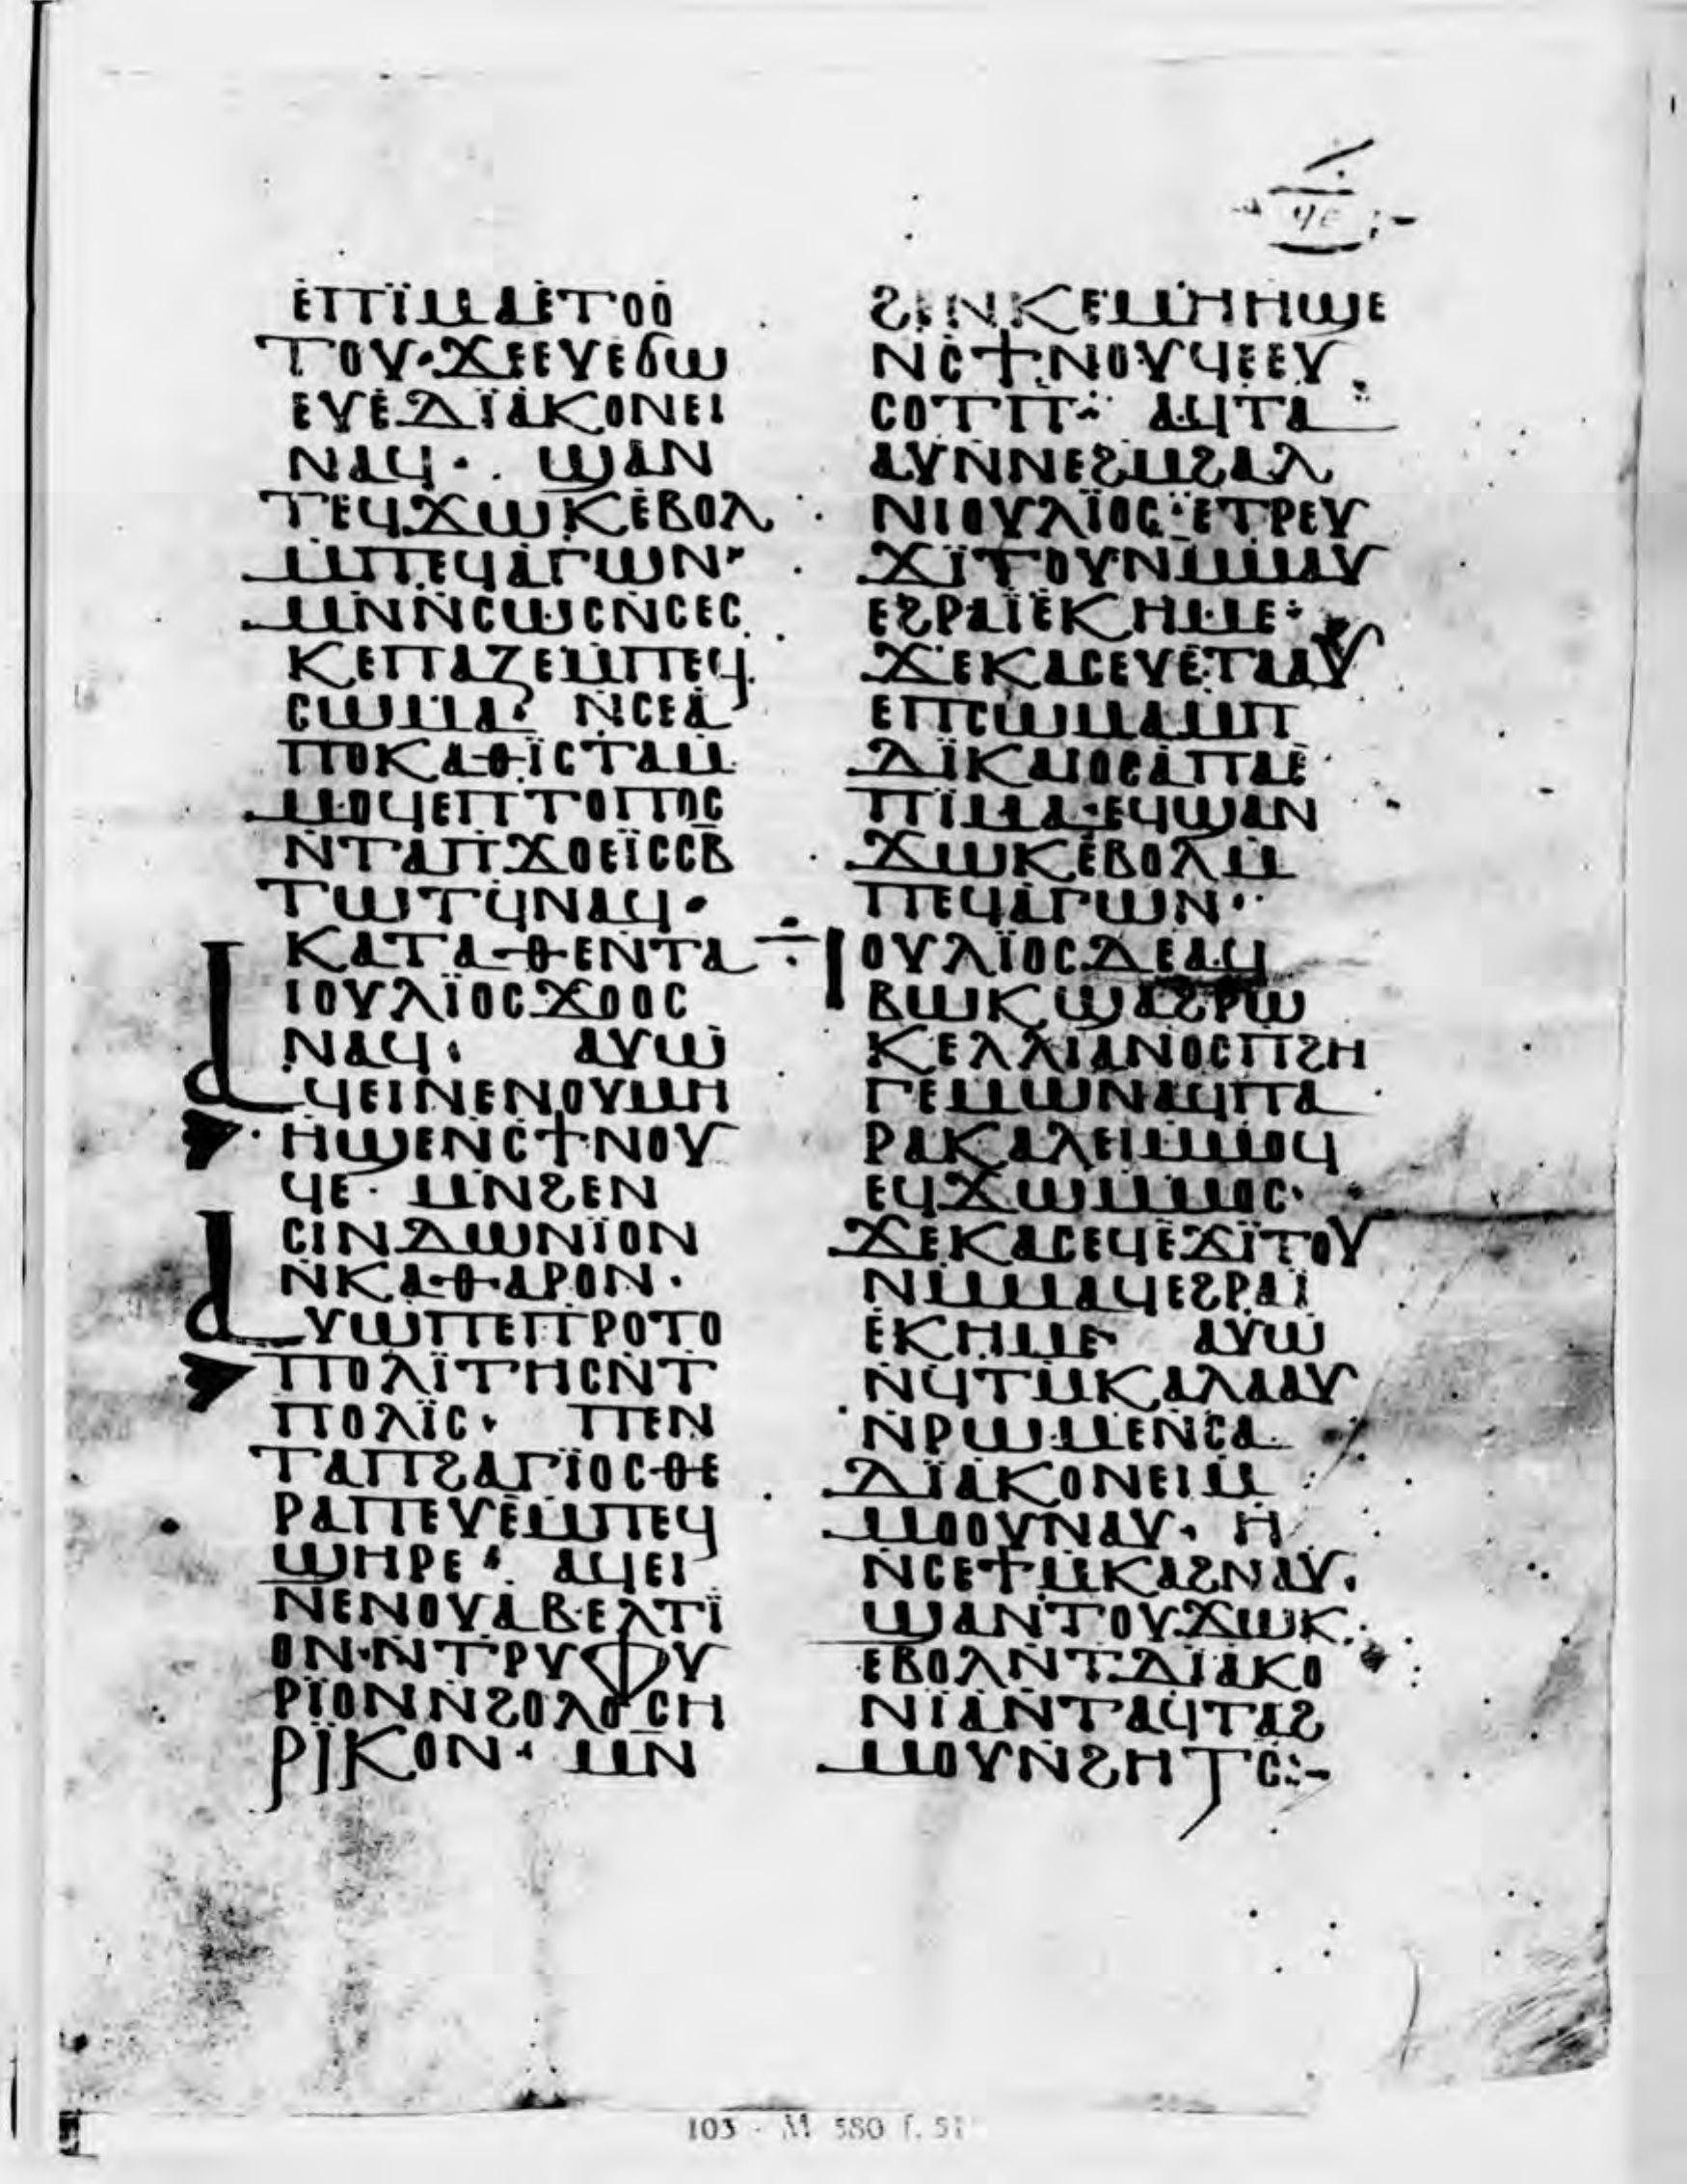 ϥⲉ
ⲉⲡⲓⲙⲁⲉⲧⲟⲟ
ⲧⲟⲩ·ϫⲉⲉⲩⲉϭⲱ
ⲉⲩⲉⲇⲓⲁⲕⲟⲛⲉⲓ
ⲛⲁϥ· ϣⲁⲛ
ⲧⲉϥϫⲱⲕⲉⲃⲟⲗ
ⲙⲡⲉϥⲁⲅⲱⲛ·
ⲙⲛⲛⲥⲱⲥⲛⲥⲉⲥ
ⲕⲉⲡⲁⲍⲉⲙⲡⲉϥ
ⲥⲱⲙⲁ· ⲛⲥⲉⲁ
ⲡⲟⲕⲁⲑⲓⲥⲧⲁⲙ
ⲙⲟϥⲉⲡⲧⲟⲡⲟⲥ
ⲛⲧⲁⲡϫⲟⲉⲓⲥⲥⲃ
ⲧⲱⲧϥⲛⲁϥ·
ⲕⲁⲧⲁⲑⲉⲛⲧⲁ
ⲓⲟⲩⲗⲓⲟⲥϫⲟⲟⲥ
ⲛⲁϥ· ⲁⲩⲱ
ⲁϥⲉⲓⲛⲉⲛⲟⲩⲙⲏ
ⲏϣⲉⲛⲥϯⲛⲟⲩ
ϥⲉ· ⲙⲛϩⲉⲛ
ⲥⲓⲛⲇⲱⲛⲓⲟⲛ
ⲛⲕⲁⲑⲁⲣⲟⲛ·
ⲁⲩⲱⲡⲉⲡⲣⲟⲧⲟ
ⲡⲟⲗⲓⲧⲏⲥⲛⲧ
ⲡⲟⲗⲓⲥ· ⲡⲉⲛ
ⲧⲁⲡϩⲁⲅⲓⲟⲥⲑⲉ
ⲣⲁⲡⲉⲩⲉⲙⲡⲉϥ
ϣⲏⲣⲉ· ⲁϥⲉⲓ
ⲛⲉⲛⲟⲩⲁⲃⲉⲗⲧⲓ
ⲟⲛ·ⲛⲧⲣⲩⲫⲩ
ⲣⲓⲟⲛⲛϩⲟⲗⲟⲥⲏ
ⲣⲓⲕⲟⲛ· ⲙⲛ
ϩⲉⲛⲕⲉⲙⲏⲏϣⲉ
ⲛⲥϯⲛⲟⲩϥⲉⲉⲩ
ⲥⲟⲧⲡ· ⲁϥⲧⲁ
ⲁⲩⲛⲛⲉϩⲙϩⲁⲗ
ⲛⲓⲟⲩⲗⲓⲟⲥ·ⲉⲧⲣⲉⲩ
ϫⲓⲧⲟⲩⲛⲙⲙⲁⲩ
ⲉϩⲣⲁⲓⲉⲕⲏⲙⲉ·
ϫⲉⲕⲁⲥⲉⲩⲉⲧⲁⲁⲩ
ⲉⲡⲥⲱⲙⲁⲙⲡ
ⲇⲓⲕⲁⲓⲟⲥⲁⲡⲁⲉ
ⲡⲓⲙⲁ·ⲉϥϣⲁⲛ
ϫⲱⲕⲉⲃⲟⲗⲙ
ⲡⲉϥⲁⲅⲱⲛ·
ⲓⲟⲩⲗⲓⲟⲥⲇⲉⲁϥ
ⲃⲱⲕϣⲁϩⲣⲱ
ⲕⲉⲗⲗⲓⲁⲛⲟⲥⲡϩⲏ
ⲅⲉⲙⲱⲛⲁϥⲡⲁ
ⲣⲁⲕⲁⲗⲉⲓⲙⲙⲟϥ
ⲉϥϫⲱⲙⲙⲟⲥ·
ϫⲉⲕⲁⲥⲉϥⲉϫⲓⲧⲟⲩ
ⲛⲙⲙⲁϥⲉϩⲣⲁⲓ
ⲉⲕⲏⲙⲉ· ⲁⲩⲱ
ⲛϥⲧⲙⲕⲁⲗⲁⲁⲩ
ⲛⲣⲱⲙⲉⲛⲥⲁ
ⲇⲓⲁⲕⲟⲛⲉⲓⲙ
ⲙⲟⲟⲩⲛⲁⲩ· ⲏ
ⲛⲥⲉϯⲙⲕⲁϩⲛⲁⲩ·
ϣⲁⲛⲧⲟⲩϫⲱⲕ
ⲉⲃⲟⲗⲛⲧⲇⲓⲁⲕⲟ
ⲛⲓⲁⲛⲧⲁϥⲧⲁϩ
ⲙⲟⲩⲛϩⲏⲧⲥ:-
103 - M 580 f. 51